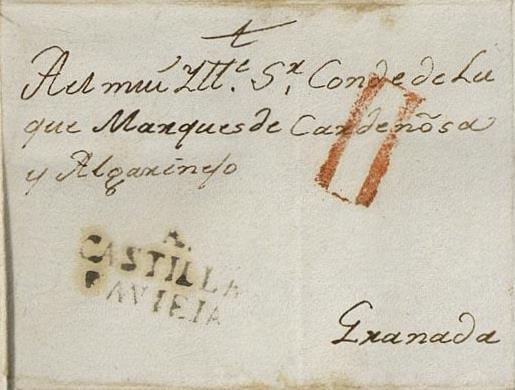 A el mui Ill.e S.r Conde de Lu
que Marques de Cardeñosa
y Algarinejo
A.
CASTILLA
LA VIEJA
Granada